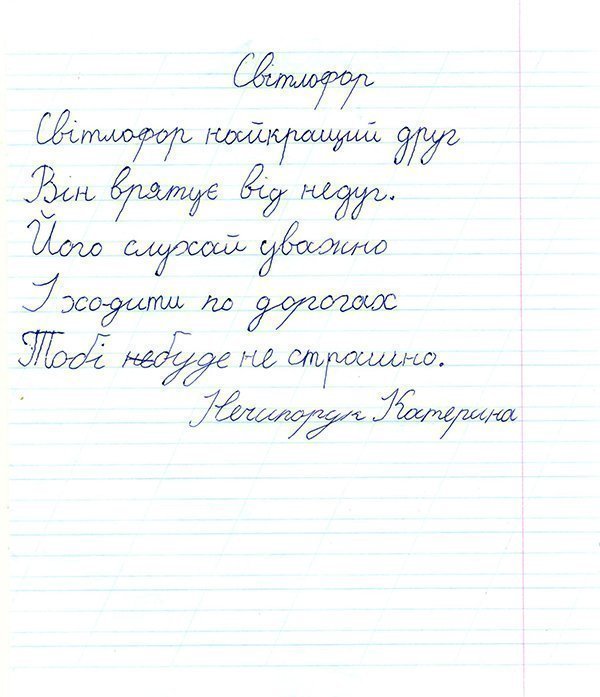 Світлофор
Світлофор найкращий друг
Він врятує від недуг.
Його слухай уважно
І ходити по дорогах
Тобі небуде не страшно.
Нечипорук Катерина